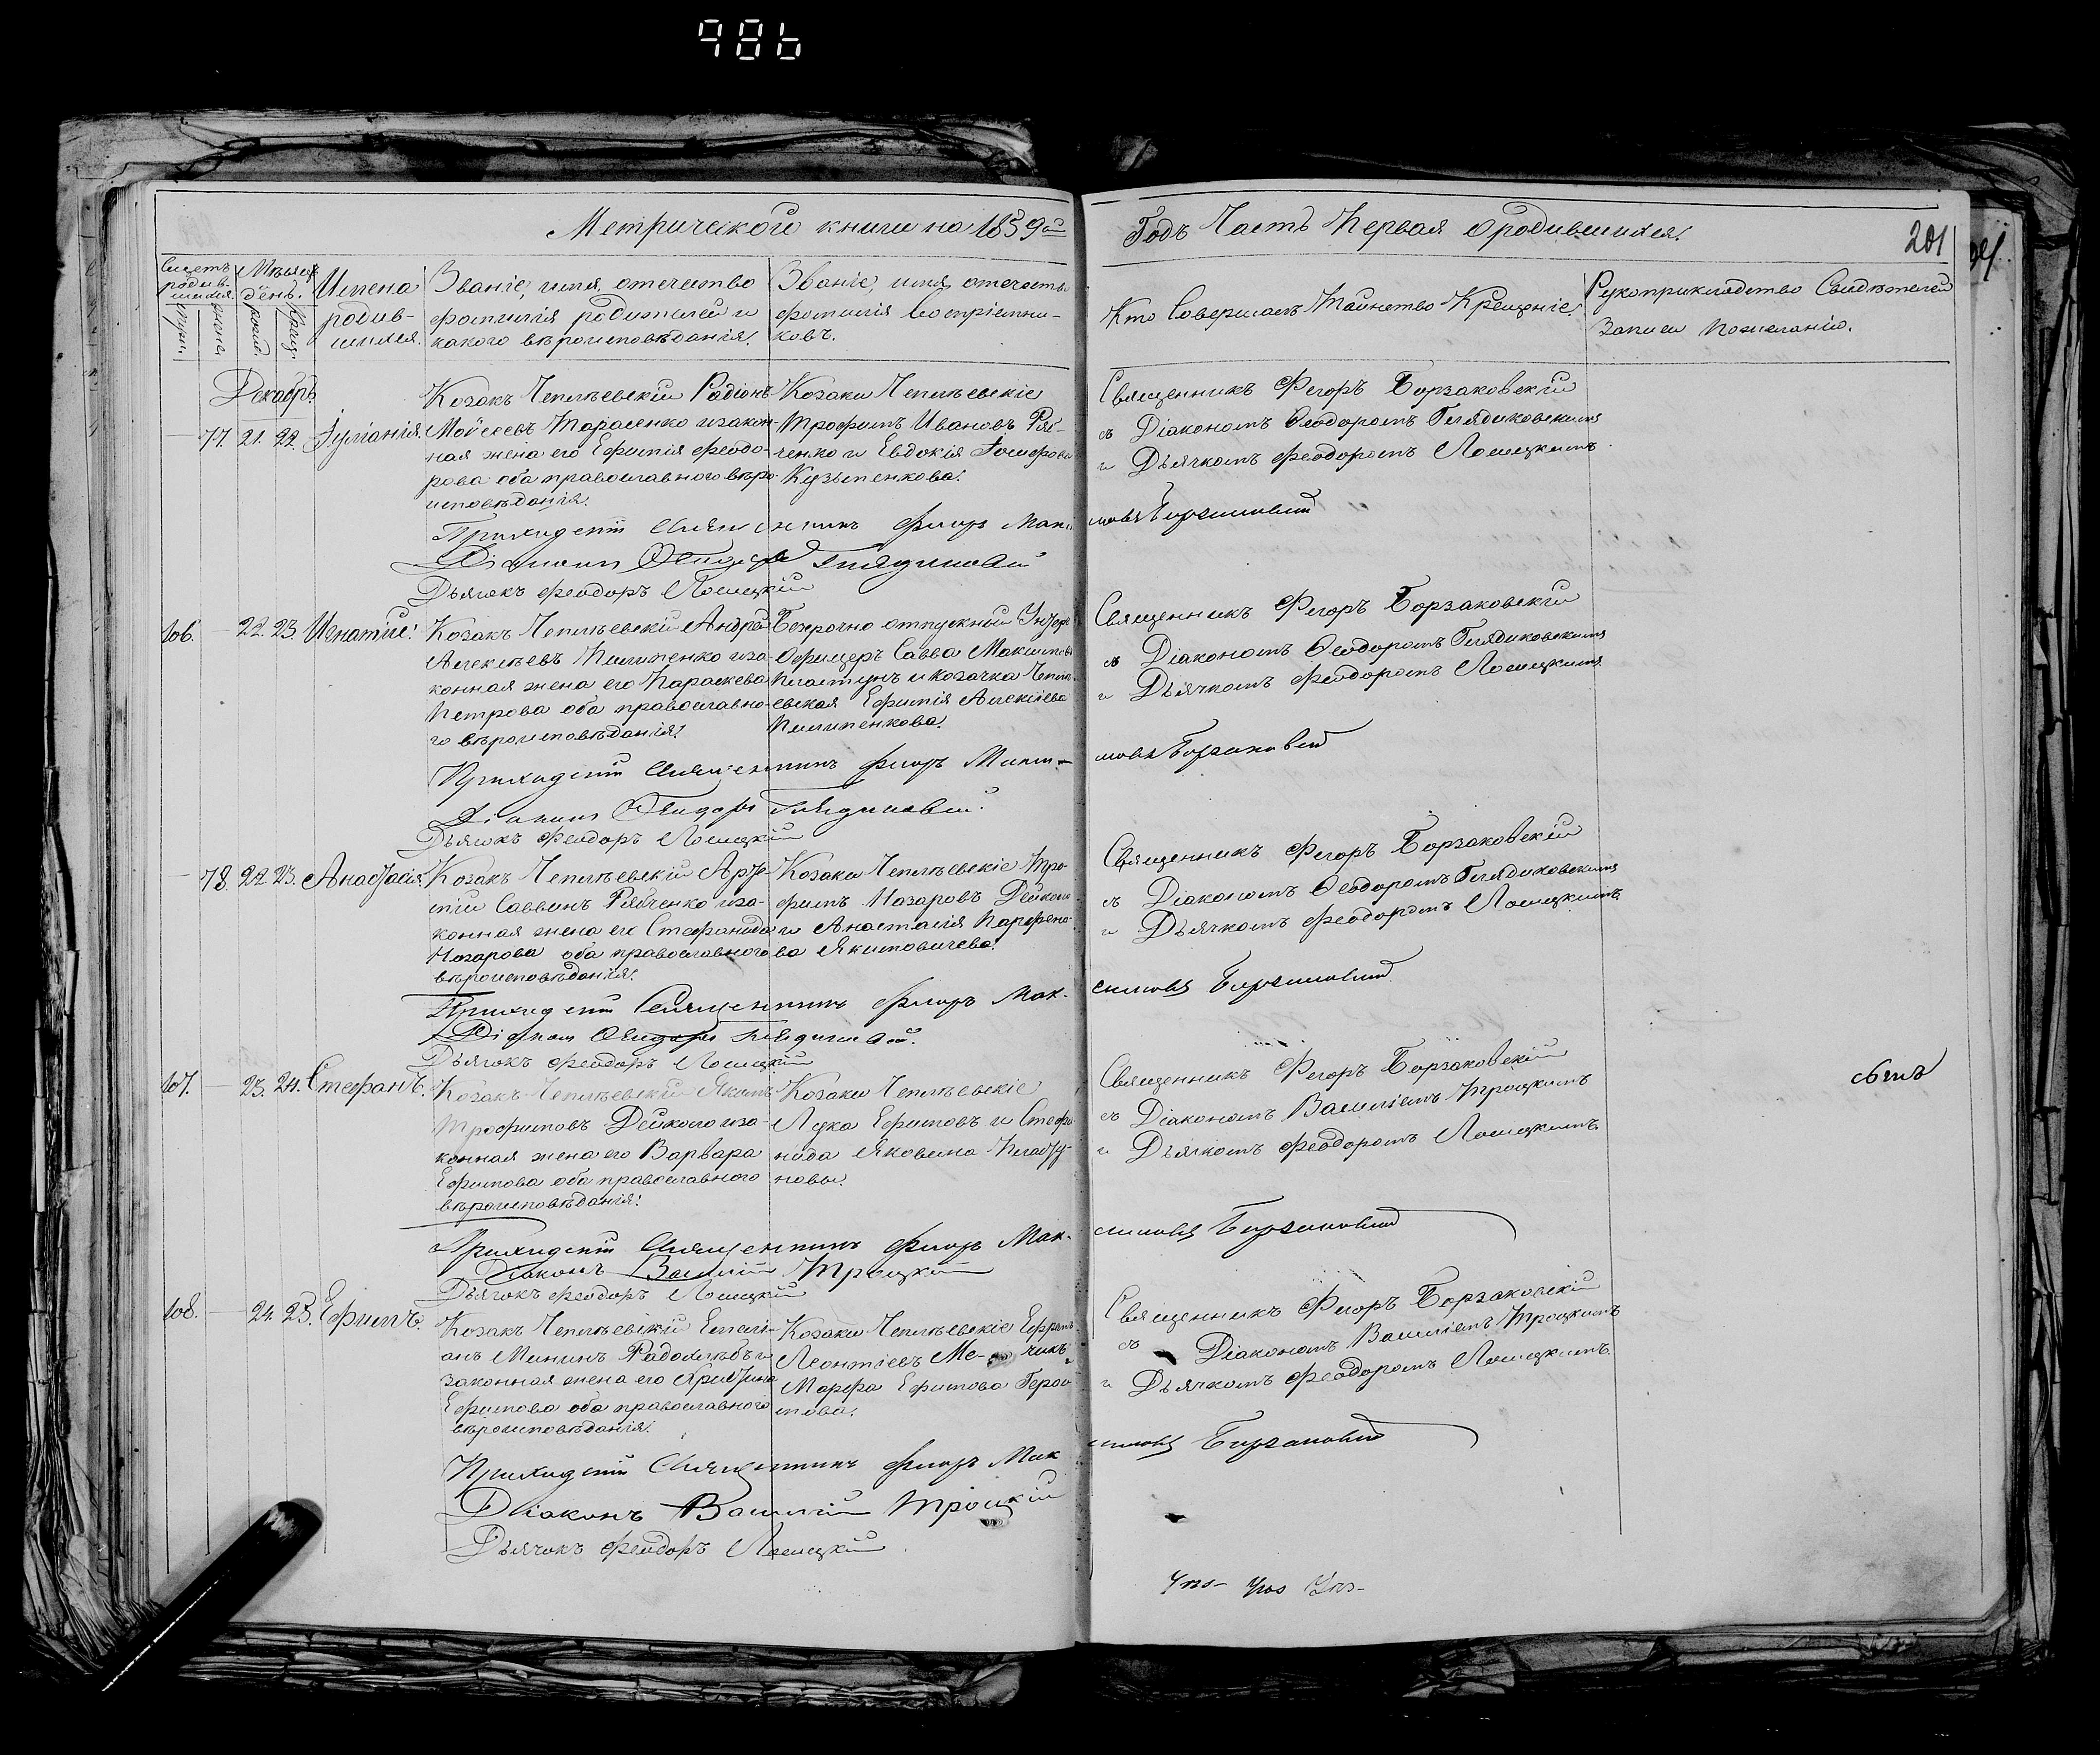 986
Метрической книги на 1859й
Годъ Часть Первая о родившихся.
201
Счетъ родив-шихся.
Мѣсяцъ день.
Имена родив-шихся.
Званіе, имя, отечество фамилія родителей и какого вѣроисповѣданія.
Званіе, имя, отечество фамилія Воспріемни-ковъ.
Кто Совершалъ Таинство Крещеніе.
Рукоприкладство Свидѣтелей записи по желанію.
Муж.
женс.
рожд.
Крещ.
Декабрь.
77. 21. 22. Іуліанія.
Козакъ Чепилѣевскій Радіонъ
Мойсеевъ Тарасенко и закон-
ная жена его Ефимія Феодо-
рова оба православного вѣро-
исповѣданія.
Козаки Чепилѣевскіе
Трофимъ Ивановъ Ряб-
ченко и Евдокія
Кузьменкова.
Священникъ Флоръ Борзаковскій
съ Діакономъ Феодоромъ Глядиковскимъ
и Дьячкомъ Феодоромъ Лосицкимъ.
Приходскій Священникъ Флоръ Макси
мовъ Борзаковскій
Діаконъ Феодоръ Глядиковскій
Дьячокъ Феодоръ Лосицкій
106. 22. 23. Игнатій.
Козакъ Чепилѣевскій Андрей
Алексѣевъ Пилипенко и за-
конная жена его Параскева
Петрова оба православно-
го вѣроисповѣданія.
Безсрочно отпускный Унтеръ
Офицеръ Савва Максимовъ
Пластунъ и козачка Чепилѣ-
евская Ефимія Алексіева
Пилипенкова.
Священникъ Флоръ Борзаковскій
съ Діакономъ Феодоромъ Глядиковскимъ
и Дьячкомъ Феодоромъ Лосицкимъ
Приходскій Священникъ Флоръ Макси-
мовъ Борзаковскій
Діаконъ Феодоръ Глядиковскій.
Дьячокъ Феодоръ Лосицкій
78. 22. 23. Анастасія.
Козакъ Чепилѣевскій Арте-
мій Саввинъ Рябченко и за-
конная жена его Стефанида
Назарова оба православного
вѣроисповѣданія.
Козаки Чепилѣевскіе Тро-
фимъ Назаровъ
и Анастасія Парфено-
ва Якимовичева.
Священникъ Флоръ Борзаковскій
съ Діакономъ Феодоромъ Глядиковскимъ
и Дьячкомъ Феодоромъ Лосицкимъ
Приходскій Священникъ Флоръ Мак-
симовъ Борзаковскій
Діаконъ Феодоръ Глядиковскій.
Дьячокъ Феодоръ Лосицкій
107. 23. 24. Стефанъ.
Козакъ Чепилѣевскій Якимъ
Трофимовъ Дейкого и за-
конная жена его Варвара
Ефимова оба православного
вѣроисповѣданія.
Козаки Чепилѣевскіе
Лука Ефимовъ и Стефа-
нида Яковлева
новы.
Священникъ Флоръ Борзаковскій
съ Діакономъ Василіемъ Троцкимъ
и Дьячкомъ Феодоромъ Лосицкимъ
Приходскій Священникъ Флоръ Мак-
симовъ Борзаковскій
Діаконъ Василій Троцкій
Дьячокъ Феодоръ Лосицкій
108. 24. 25. Ефимъ.
Козакъ Чепилѣевскій Емелі-
анъ Мининъ и
законная жена его Христина
Ефимова оба православного
вѣроисповѣданія.
Козаки Чепилѣевскіе Ефремъ
Леонтіевъ
Марфа Ефимова Гераси-
мова.
Священникъ Флоръ Борзаковскій
съ Діакономъ Василіемъ Троцкимъ
и Дьячкомъ Феодоромъ Лосицкимъ.
Приходскій Священникъ Флоръ Мак
симовъ Борзаковскій
Діаконъ Василій Троцкій
Дьячокъ Феодоръ Лосицкій